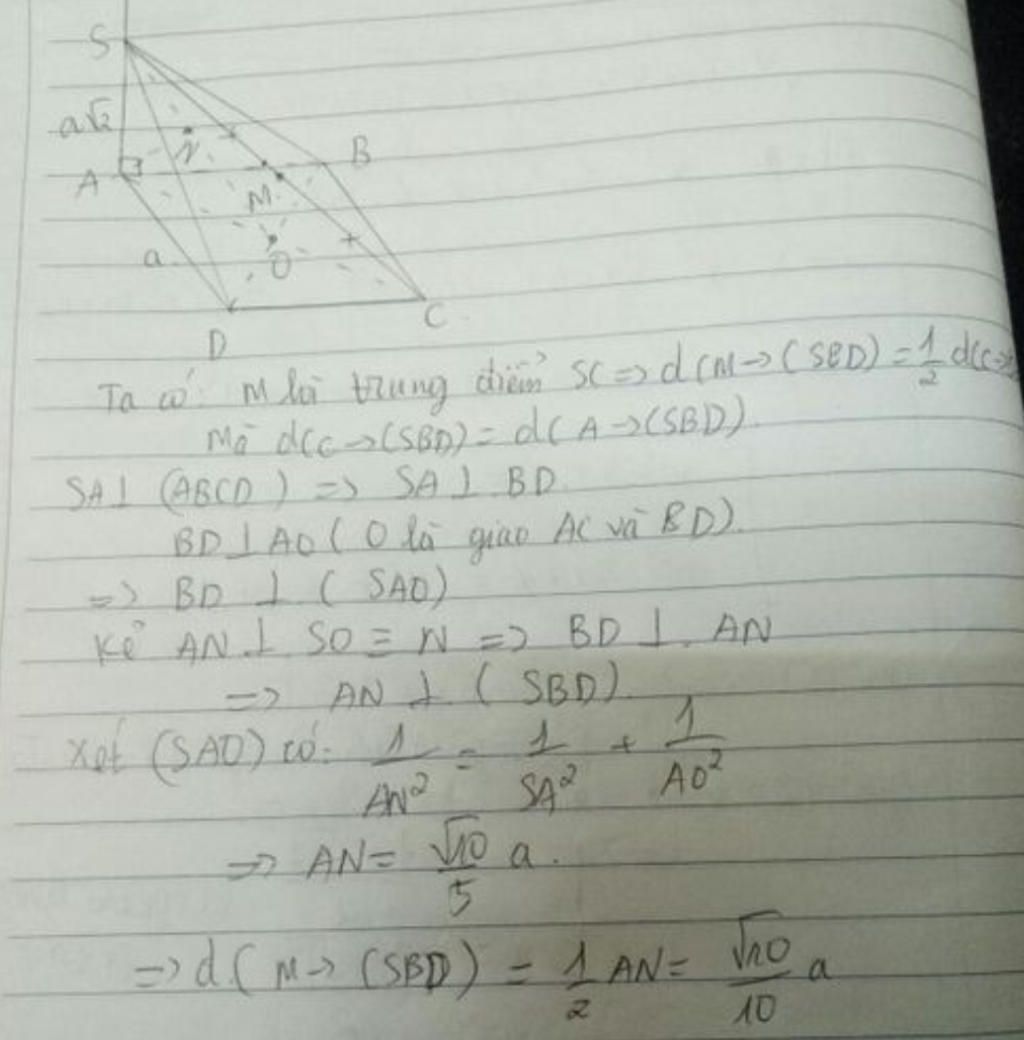 S
a√2
N
B
A
M
a
O
D
C
Ta có: M là trung điểm SC => d(M->(SBD) = 1/2 d(C->
Mà d(C->(SBD) = d(A->(SBD).
SA ⊥ (ABCD) => SA ⊥ BD
BD ⊥ AO (O là giao AC và BD)
=> BD ⊥ (SAO)
Kẻ AN ⊥ SO ≡ N => BD ⊥ AN
=> AN ⊥ (SBD).
Xét (SAO) có: 1/AN² = 1/SA² + 1/AO²
=> AN = √10/5 a.
=> d(M->(SBD) = 1/2 AN = √10/10 a